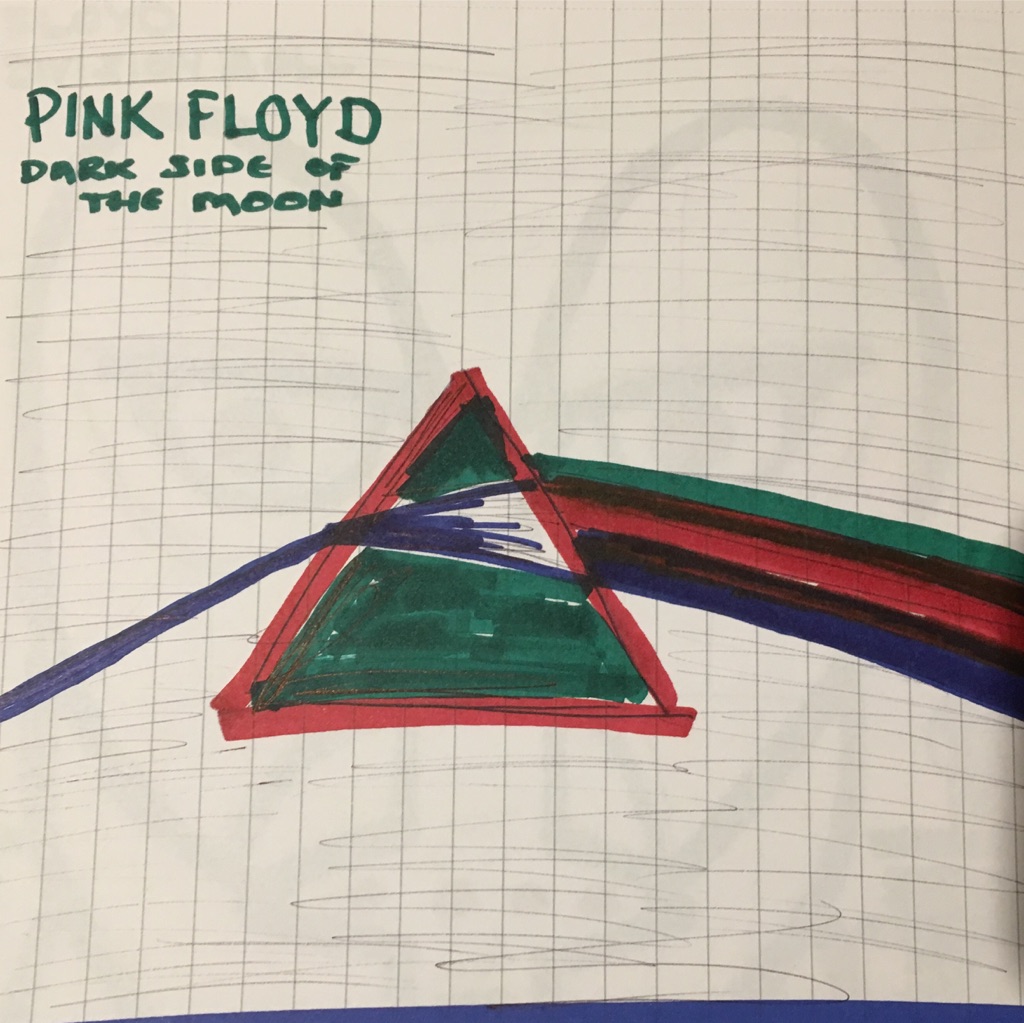 PINK FLOYD
DARK SIDE OF
THE MOON